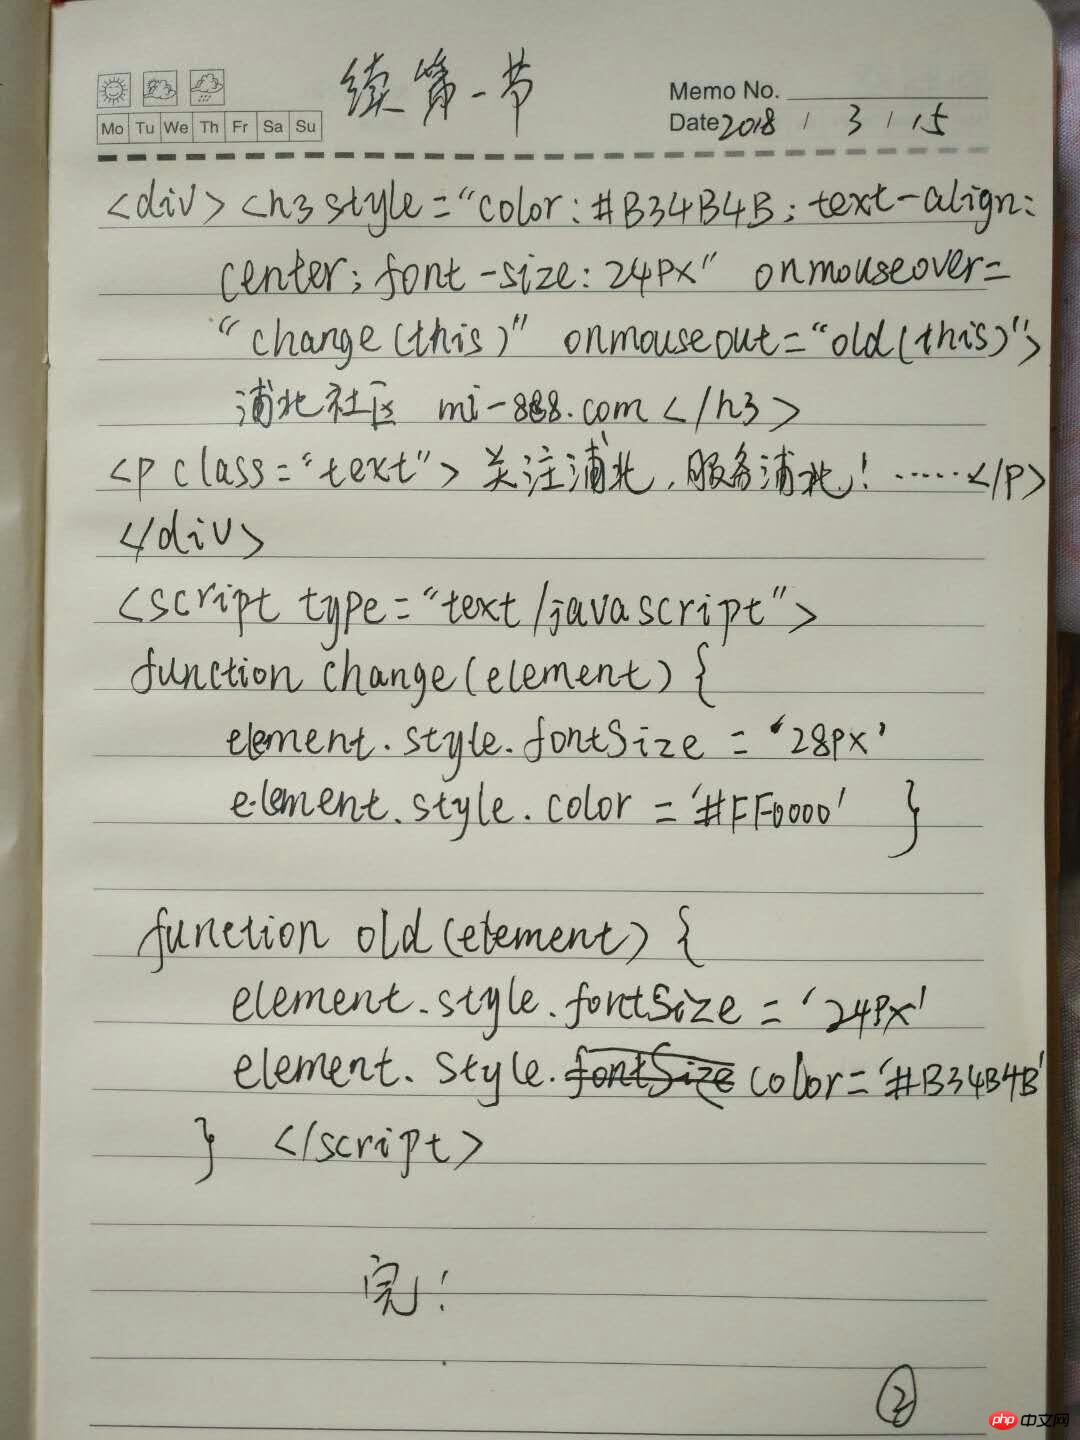 续第一节
Memo No.
Mo Tu We Th Fr Sa Su
Date 2018 / 3 / 15
<div><h3 style="color:#B34B4B; text-align:
center; font-size: 24px" onmouseover=
"change(this)" onmouseout="old(this)">
浦北社区 mi-888.com</h3>
<p class="text">关注浦北,服务浦北!……</p>
</div>
<script type="text/javascript">
function change(element) {
element.style.fontSize = '28px'
element.style.color = '#FF0000' }
function old(element) {
element.style.fontSize = '24px'
element.style.fontSize color='#B34B4B'
} </script>
完!
2
php 中文网